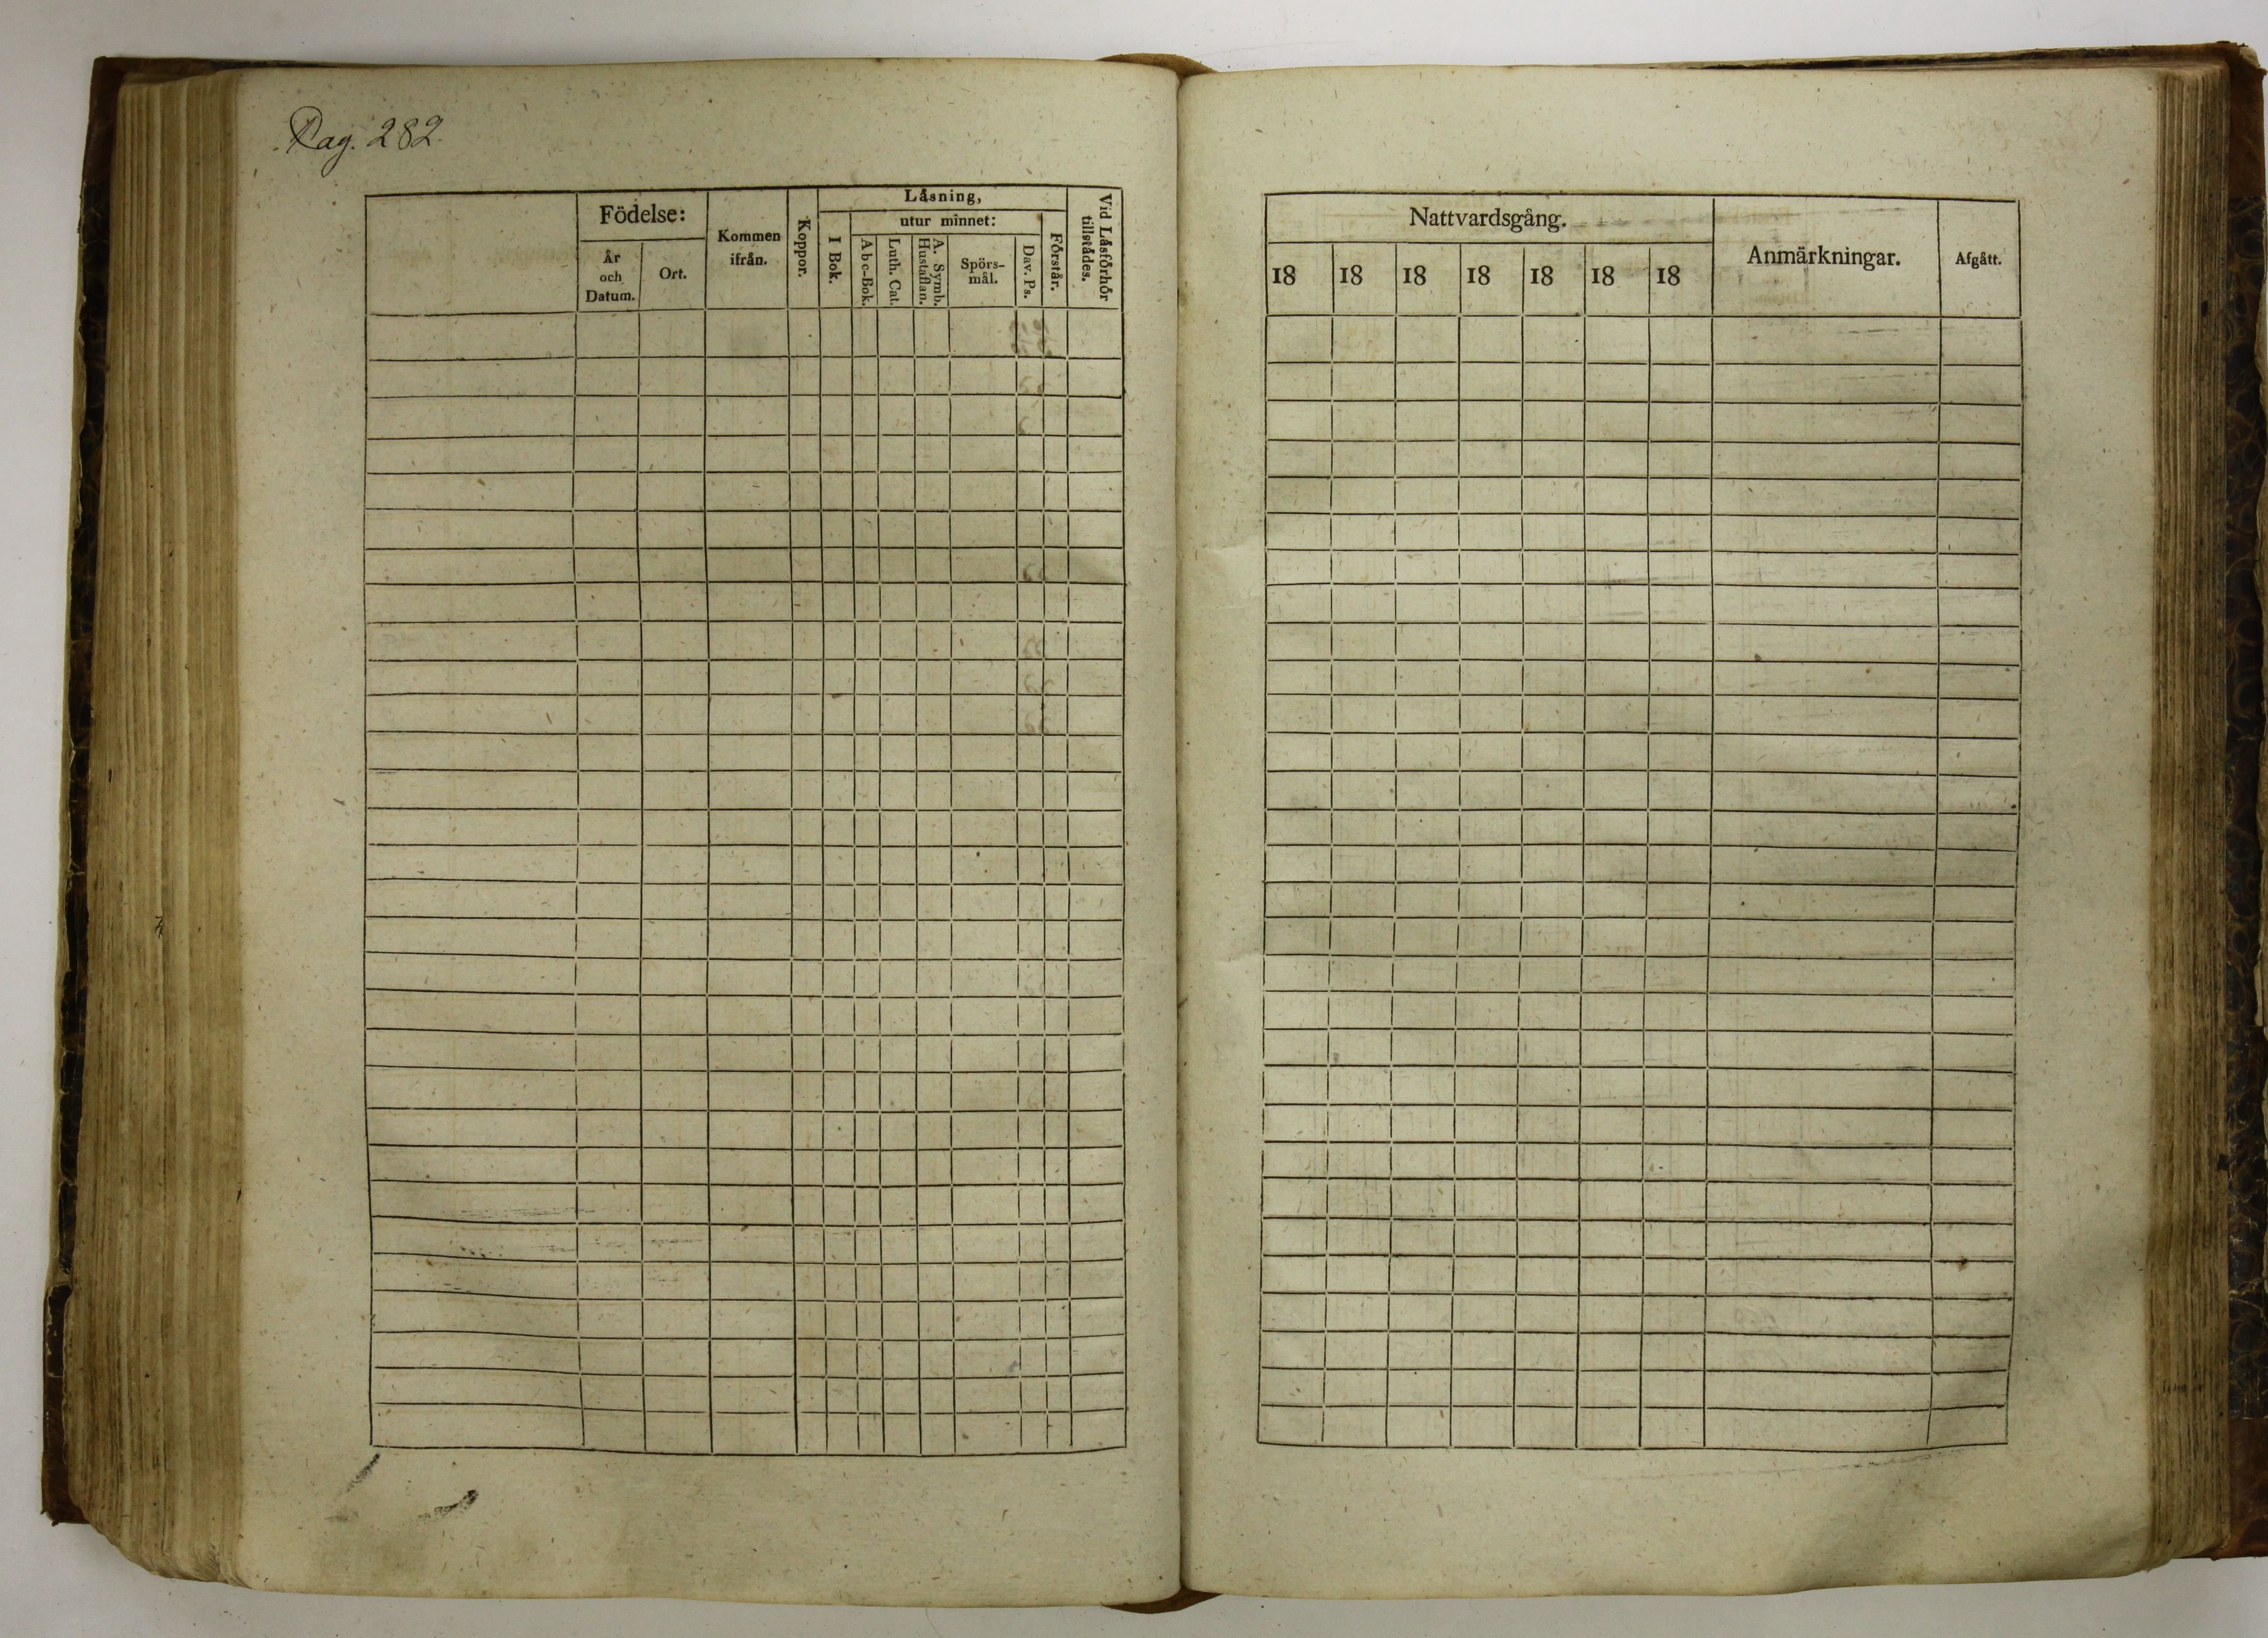 Pag. 282.
Födelse:
År
och
Datum.
Ort.
Kommen
ifrån.
Koppor.
Låsning,
I Bok.
utur minnet:
Abc-Bok.
Luth. Cat.
A. Symb.
Hustaflan.
Spörs-
mål.
Dav. Ps.
Förstår.
Vid Låsförhör
tillstädes.
Nattvardsgång.
18 18 18 18 18 18 18
Anmärkningar.
Afgått.